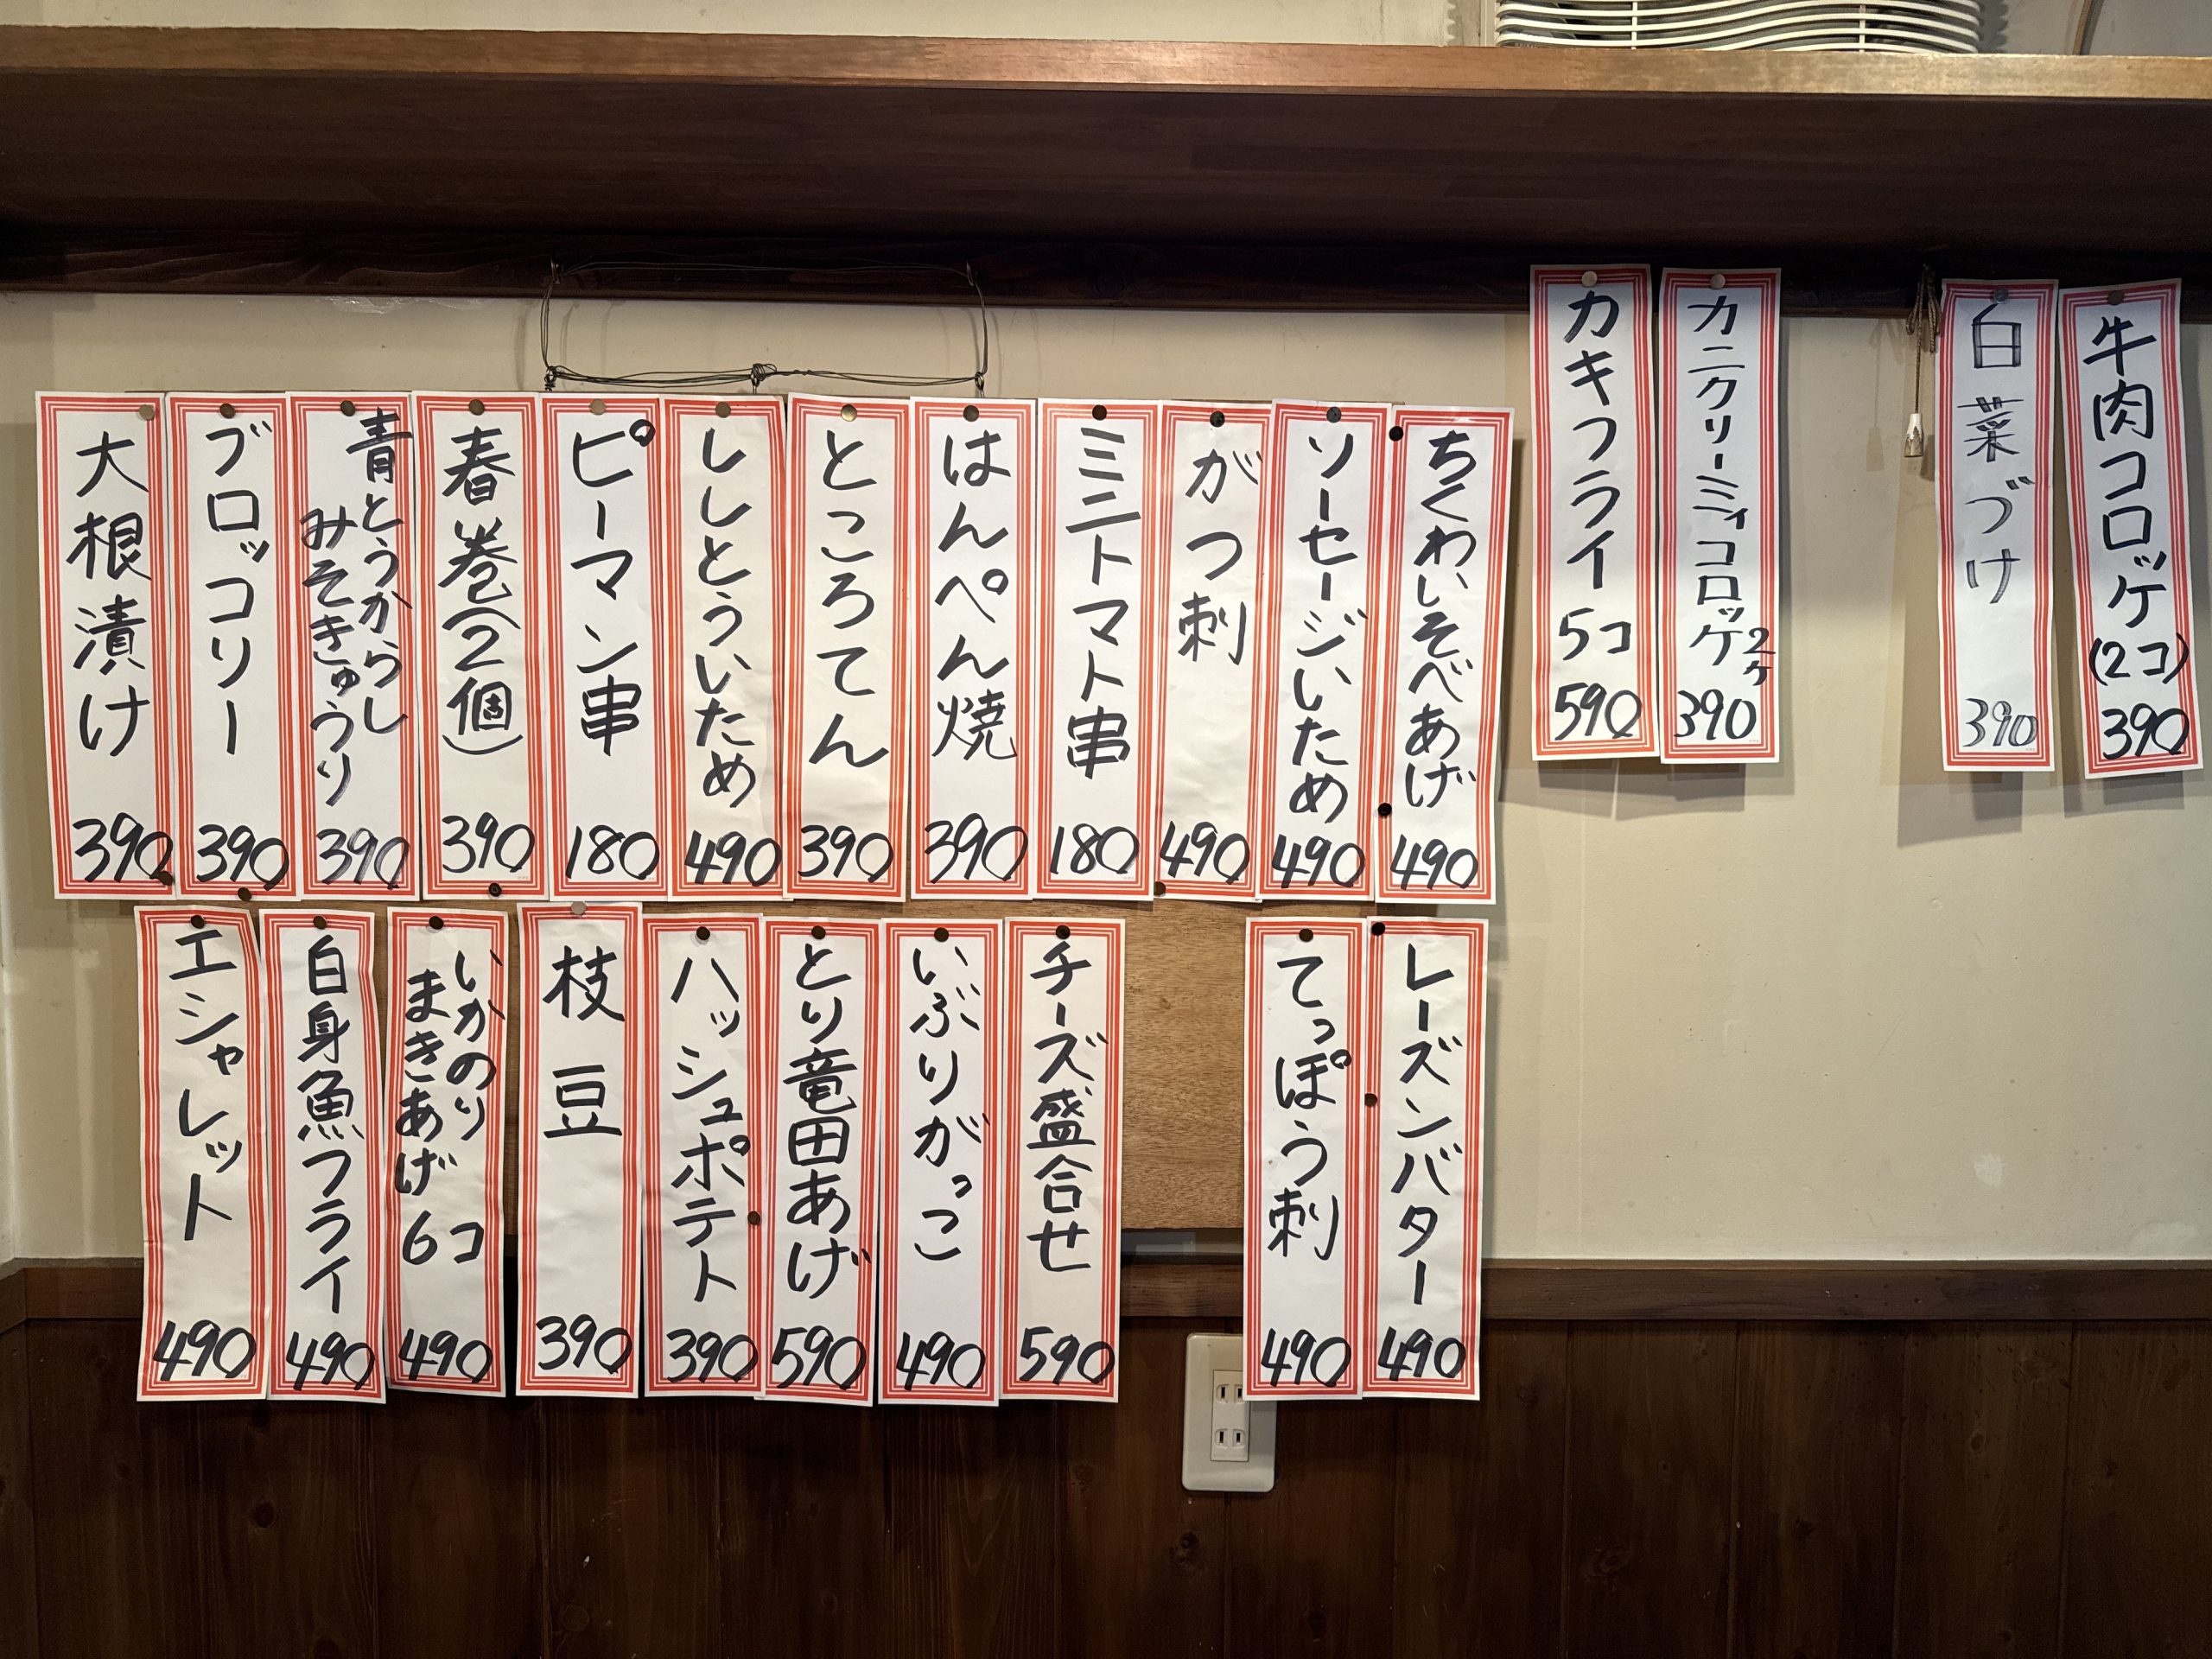 牛肉コロッケ
(2コ)
390
白菜づけ
390
カニクリーミィコロッケ2ヶ
390
カキフライ
5コ
590
ちくわいそべあげ
490
ソーセージいため
490
がつ刺
490
ミニトマト串
180
はんぺん焼
390
ところてん
390
ししとういため
490
ピーマン串
180
春巻(2個)
390
青とうからし
みそきゅうり
390
ブロッコリー
390
大根漬け
390
レーズンバター
490
てっぽう刺
490
チーズ盛合せ
590
いぶりがっこ
490
とり竜田あげ
590
ハッシュポテト
390
枝豆
390
いかのり
まきあげ
6コ
490
白身魚フライ
490
エシャレット
490